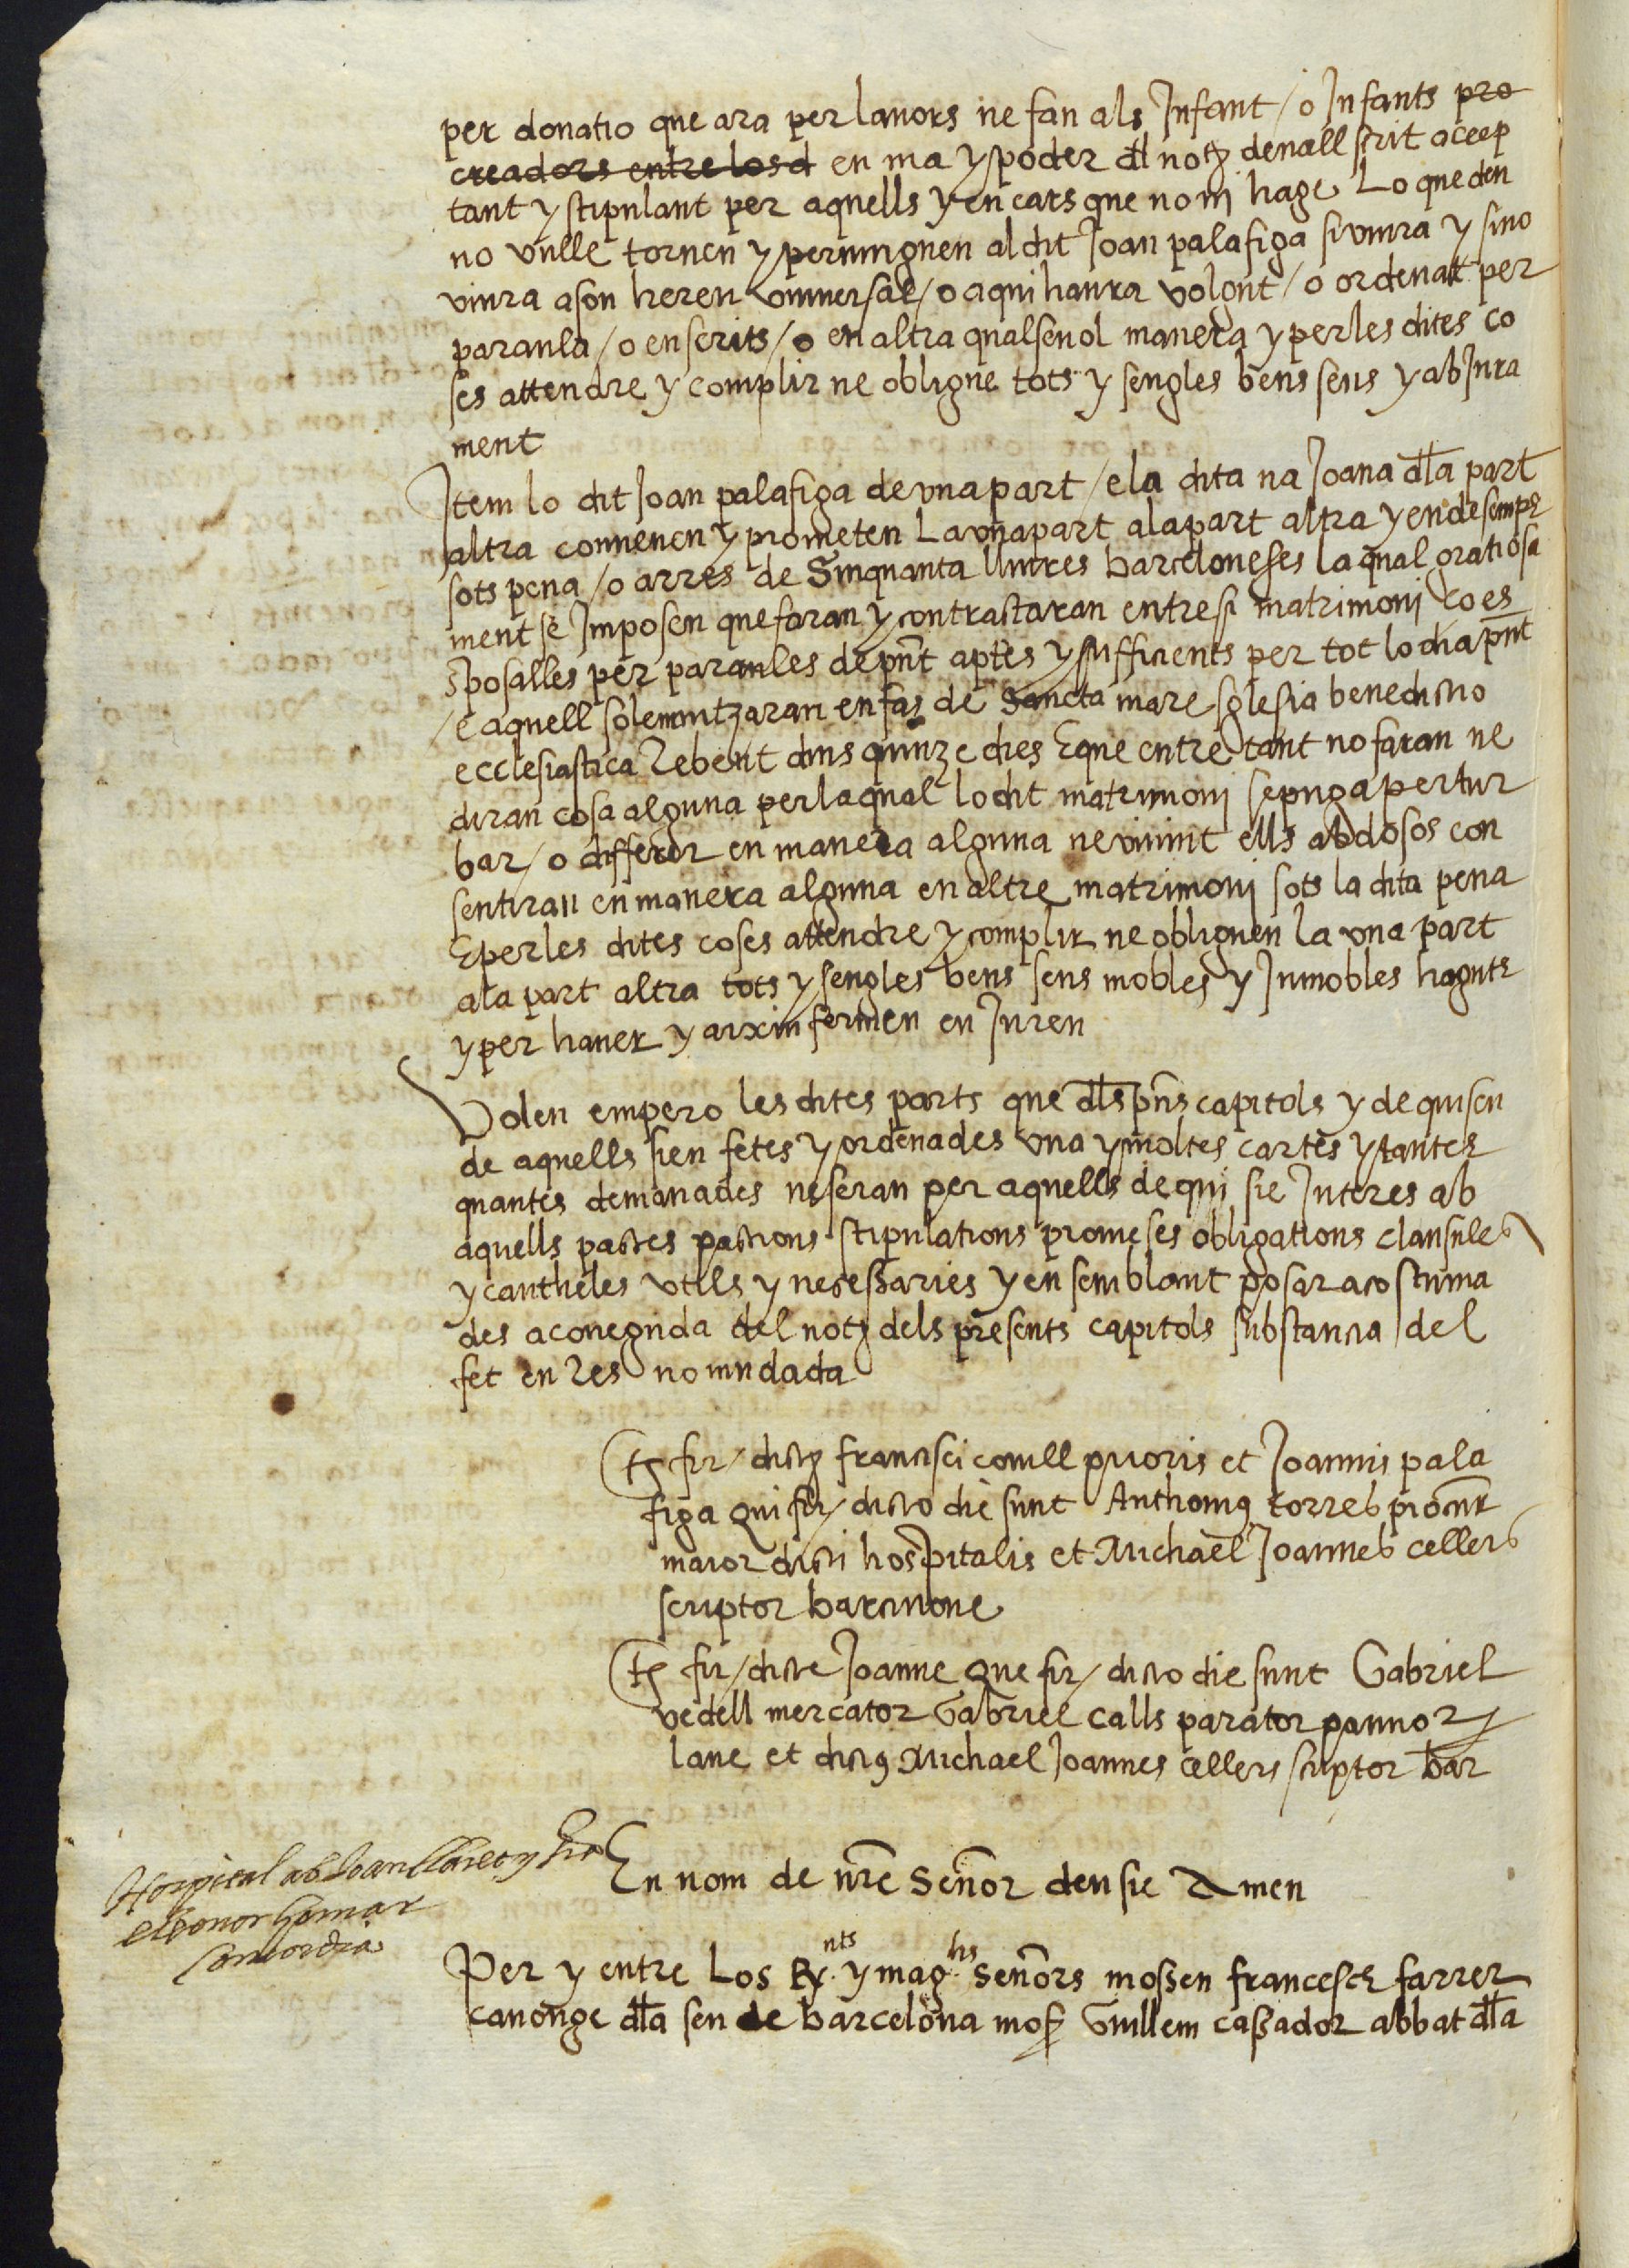 per donatio que ara per lavors ne fan als Infant / o Infants pro
creadors entre los d en ma y poder dl notȝ devall scrit accep
tant y stipulant per aquells y en cars que no ni hage Lo que deu
no vulle tornen y pervinguen al dit Joan palafiga si viura y sino
viura a son hereu universal / o a qui haura volgut / o ordenat per
paraula / o en scrits / o en altra qualsevol manera y per les dites co
ses attendre y complir ne obligue tots y sengles bens seus y ab Jura
ment
Item lo dit Joan palafiga de una part / e la dita na Joana dla part
altra convenen y prometen La una part a la part altra y endesemps
sots pena / o arres de Sinquanta lliures barceloneses la qual gratiosa
ment se Imposen que faran y contractaran entre si matrimoni ço es
sposalles per paraules de pnt aptes y sufficients per tot lo dia pnt
/ e aquell solemnitzaran en fas de Sancta mare sglesia benedictio
ecclesiastica Rebent dins quinze dies E que entre tant no faran ne
diran cosa alguna per la qual lo dit matrimoni se puga pertur
bar / o differir en manera alguna ne vivint ells abdosos con
sentiran en manera alguna en altre matrimoni sots la dita pena
E per les dites coses attendre y complir ne obliguen la una part
a la part altra tots y sengles bens seus mobles y Inmobles haguts
y per haver y aixin fermen en Juren
Volen empero les dites parts que dls pns capitols y de quiscu
de aquells sien fetes y ordenades una y moltes cartes y tantes
quantes demanades ne seran per aquells de qui sie Interes ab
aquells pactes pactions stipulations promeses obligations clausules
y cautheles utils y necessaries y en semblant posar acostuma
des a coneguda del notȝ dels presents capitols substancia del
fet en Res no mudada
ts fir / dictȝ francisci comell prioris et Joannis pala
figa qui fir / dicto die sunt Anthoniȝ torres procur
maior dicti hospitalis et Michael Joannes cellers
scriptor barcinone
ts fir / dicte Joanne que fir / dicto die sunt Gabriel
vedell mercator Gabriel calls parator pannoꝝ
lane et dictȝ Michael Joannes cellers scriptor bar
Hospital ab Joan
eleonor
Concordia
En nom de nre Senor deu sie Amen
Per y entre Los Rts y maghs Senors mossen francesch farrer
canonge dla seu de barcelona mos Guillem cassador abbat dla